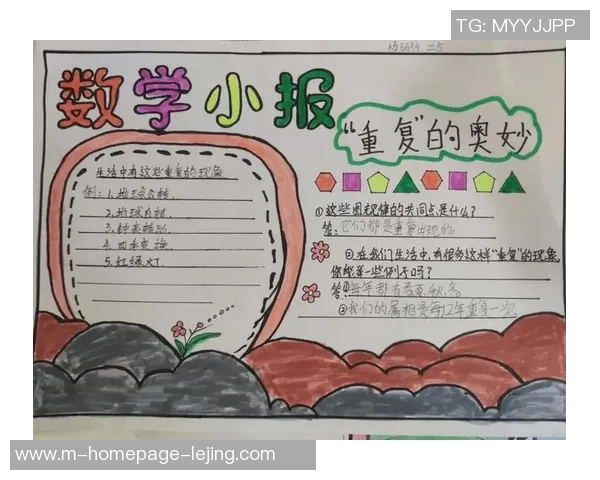 TG: MYYJJPP
二5
数学小报
"重复"的奥妙
生活中有这些重复的现象
例:1.地球公转.
2.地球自转.
3.钟表转动.
4.四季变换.
5.红绿灯.
①这些图规律的共同点是什么?
答:它们都是重复出现的。
②在我们生活中,有很多这样"重复"的现象,
你能举一些例子吗?
答:①每年都有春夏秋冬。
②我们的属相是每12年重复一次。
www.m-homepage-lejing.com